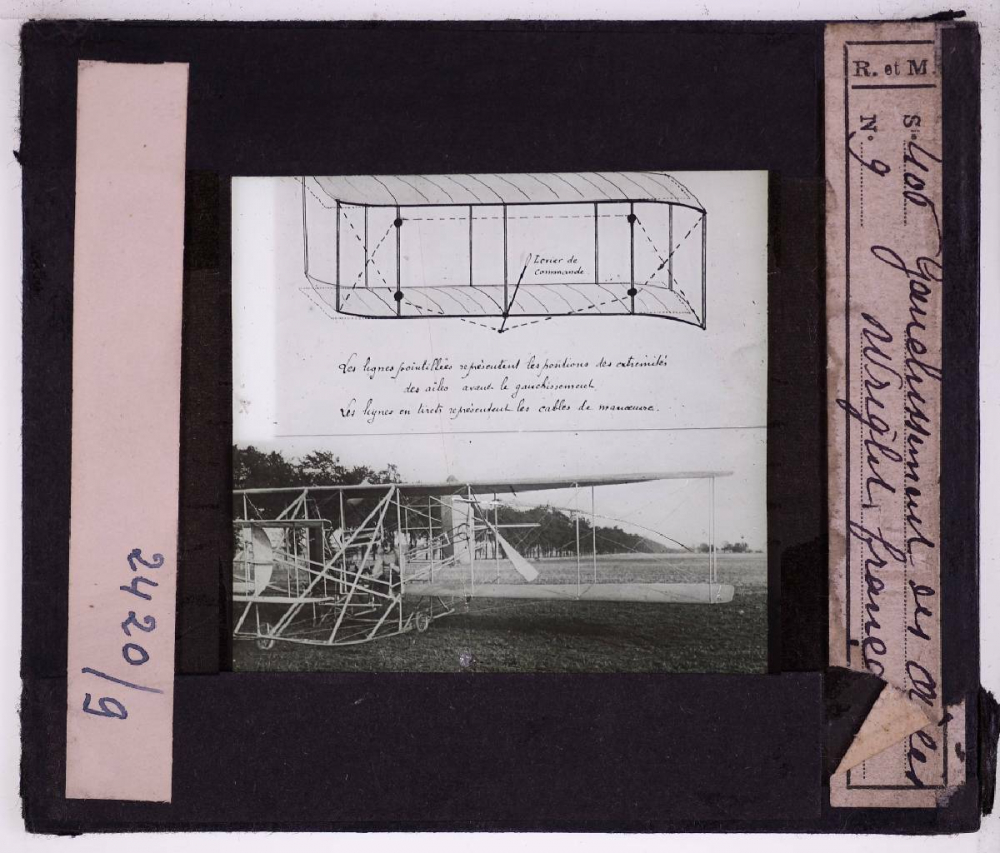 2420/9
Levier de
commande
Les lignes pointillées représentent les positions des extrémités
des ailes avant le gauchissement
Les lignes en tirets représentent les cables de manœuvre.
R. et M.
S. 400 Gauchissement des ailes
N. 9 Wright, France